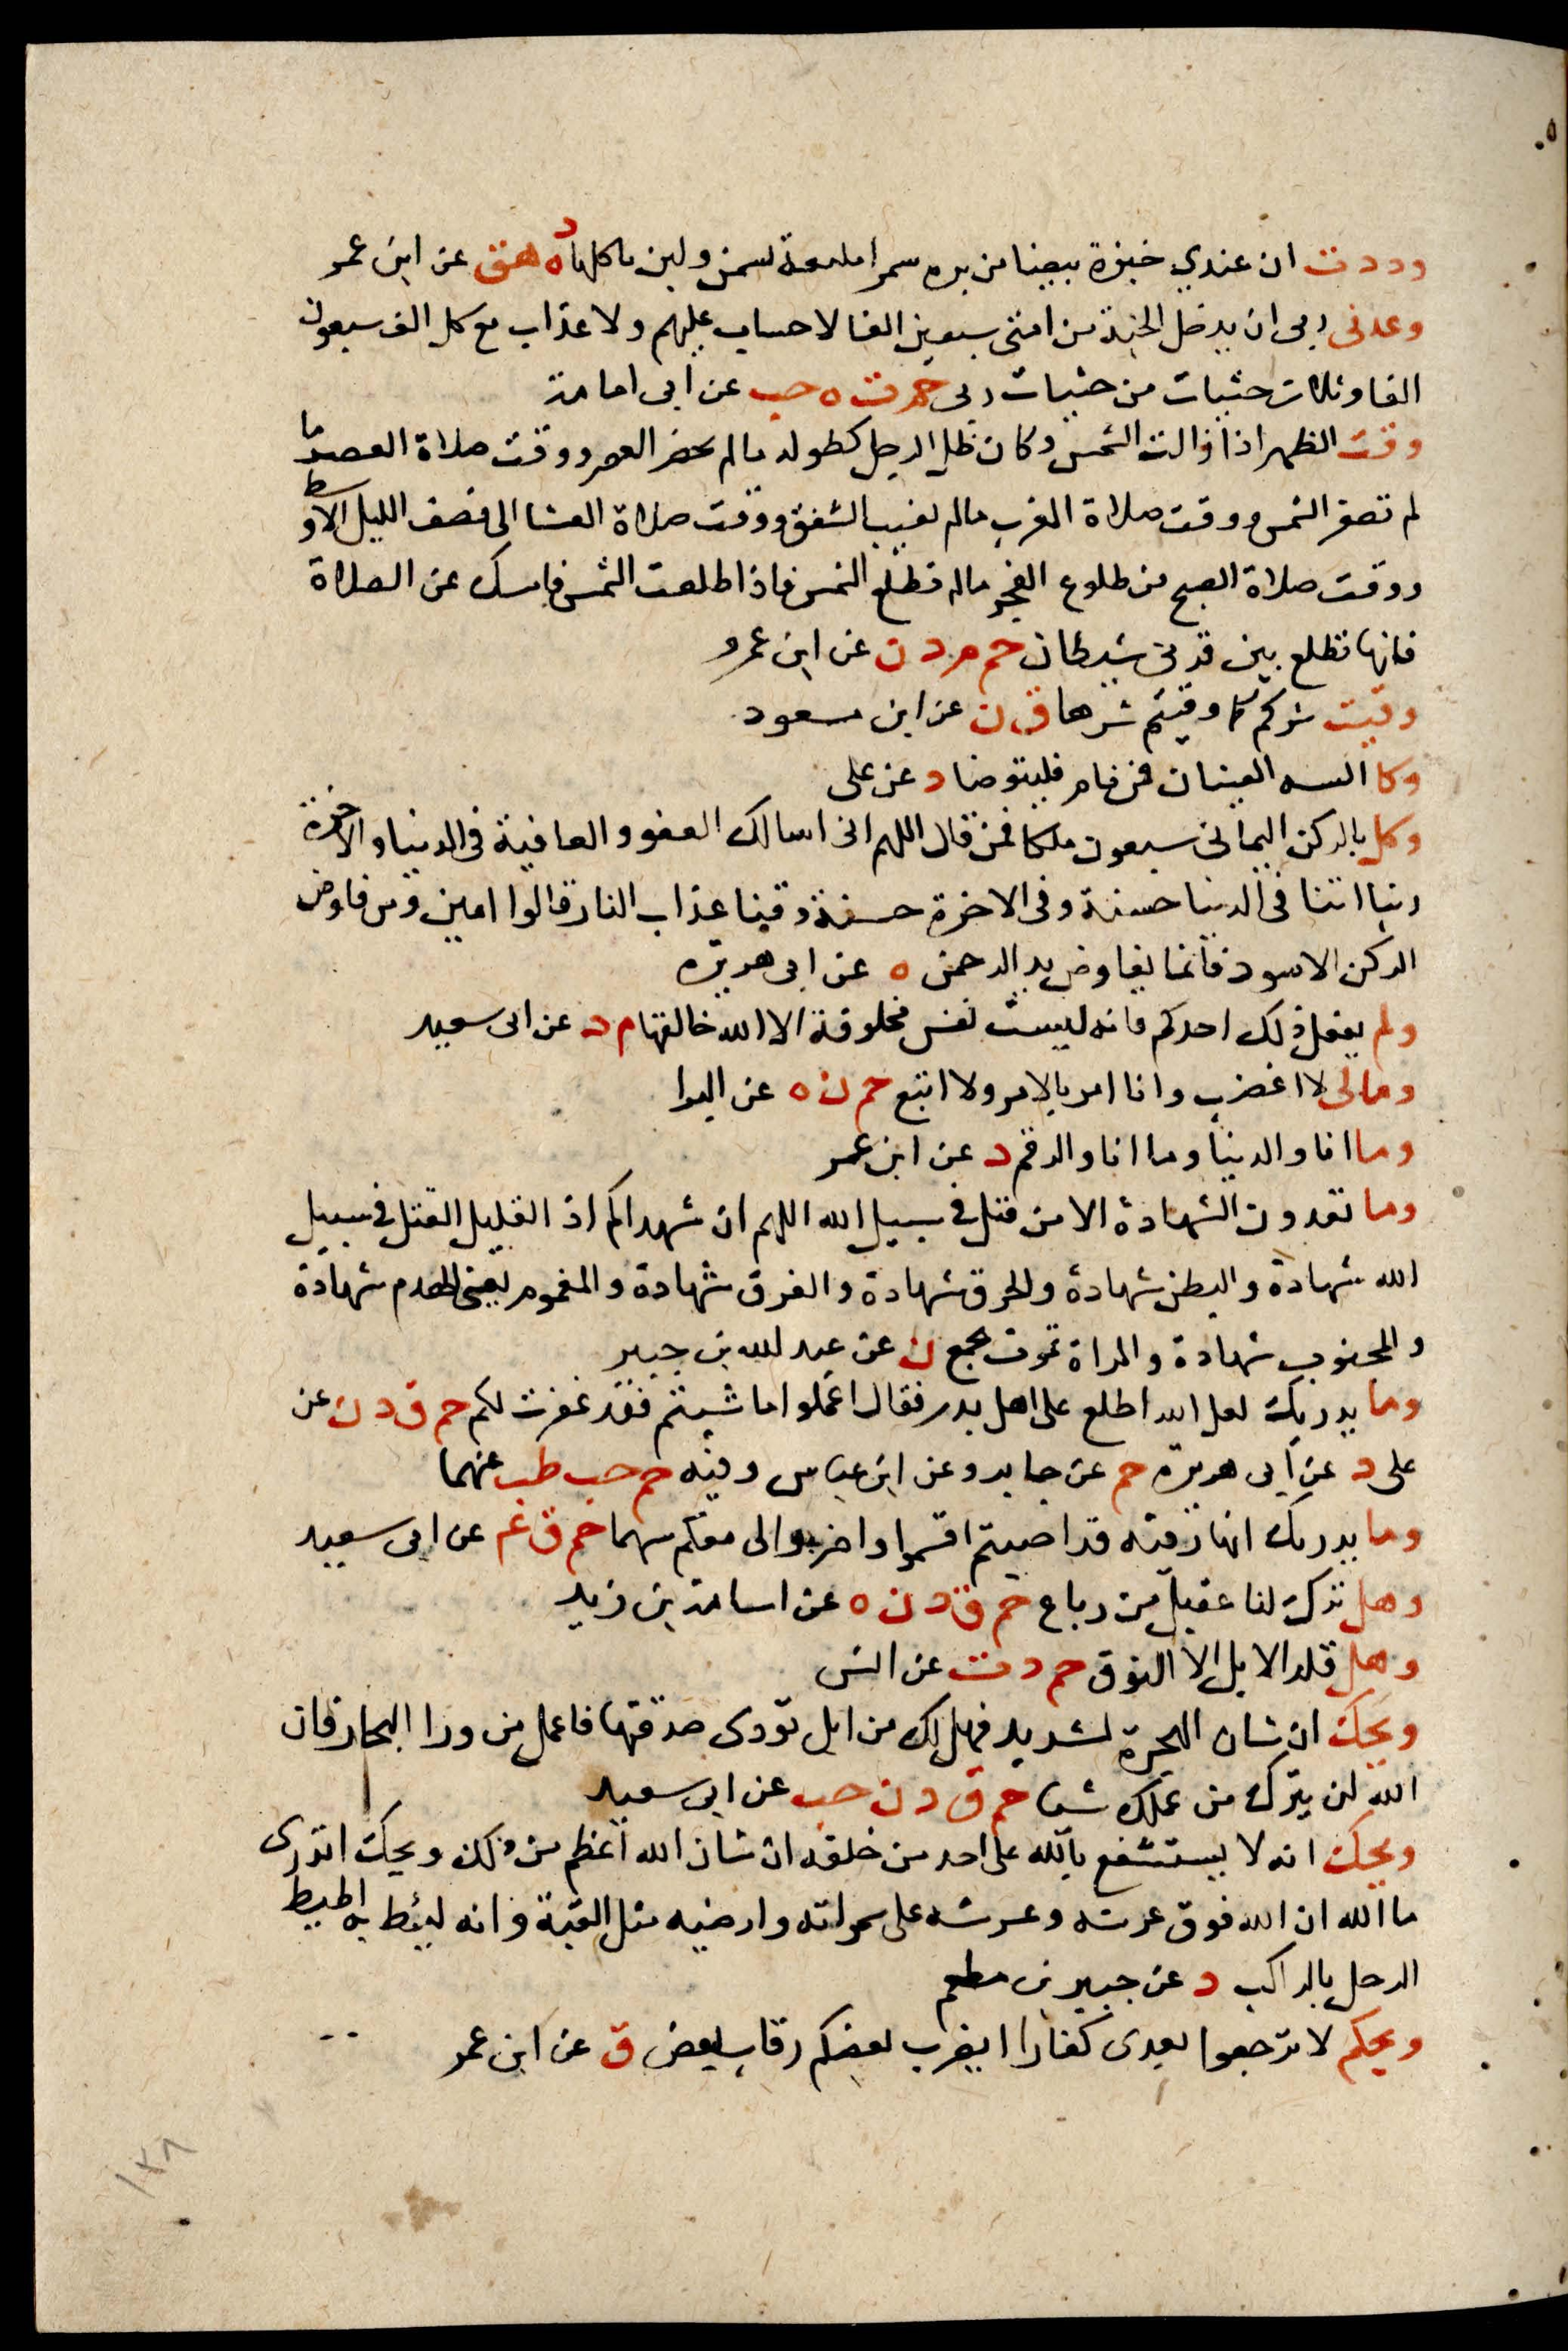 وددت ان عندي خبزة بيضا من بره سمرا ملبعة بسمن ولبن ناكلها د ه هق عن ابن عمر
وعدنى ربى ان يدخل الجنة من امتى سبعين الفا لا حساب عليهم ولا عذاب مع كل الف سبعون
الفا وثلاث حثيات من حثيات ربى حم ت ه حب عن ابى امامة
وقت الظهر اذا زالت الشمس وكان ظل الرجل كطوله ما لم يحضر العصر ووقت صلاة العصر ما
لم تصفر الشمس ووقت صلاة المغرب ما لم يغيب الشفق ووقت صلاة العشا الى نصف الليل الاوسط
ووقت صلاة الصبح من طلوع الفجر ما لم تطلع الشمس فاذا طلعت الشمس فامسك عن الصلاة
فانها تطلع بين قرنى شيطان حم م د ن عن ابن عمرو
وقيت شركم كما وقيتم شرها ق ن عن ابن مسعود
وكا السه العينان فمن نام فليتوضا د عن على
وكل بالركن اليمانى سبعون ملكا فمن قال اللهم انى اسالك العفو والعافية فى الدنيا والاخرة
ربنا اتنا فى الدنيا حسنة وفى الاخرة حسنة وقنا عذاب النار قالوا امين ومن فاوض
الركن الاسود فانما يفاوض يد الرحمن ه عن ابى هريره
ولم يفعل ذلك احدكم فانه ليست نفس مخلوقة الا الله خالقها م د عن ابى سعيد
ومالى لا اغضب وانا امر بالامر ولا اتبع حم ن ه عن البرا
وما انا والدنيا وما انا والرقم د عن ابن عمر
وما تعدون الشهادة الا من قتل فى سبيل الله اللهم ان شهداكم اذا لقليل القتل فى سبيل
الله شهادة والبطن شهادة والحرق شهادة والغرق شهادة والمغموم يعنى الهدم شهادة
والمجنوب شهادة والمراة تموت بجمع ن عن عبد الله بن جبير
وما يدريك لعل الله اطلع على اهل بدر فقال اعملوا ما شيتم فقد غفرت لكم حم ق د ن عن
على د عن ابى هريره حم عن جابر وعن ابن عباس وفيه حم حب طب عنهما
وما يدريك انها رقية قد اصبتم اقسموا واضربوا لى معكم سهما حم ق عم عن ابى سعيد
وهل ترك لنا عقيل من رباع حم ق د ن ه عن اسامة بن زيد
وهل تلد الابل الا النوق حم د ت عن انس
ويحك ان شان الهجرة لشديد فهل لك من ابل تؤدى صدقتها فاعمل من ورا البحار فان
الله لن يترك من عملك شيا حم ق د ن حب عن ابى سعيد
ويحك انه لا يستشفع بالله على احد من خلقه ان شان الله اعظم من ذلك ويحك اتدرى
ما الله ان الله فوق عرشه وعرشه على سمواته وارضيه مثل القبة وانه ليئط به اطيط
الرحل بالراكب د عن جبير بن مطعم
ويحكم لا ترجعوا بعدى كفارا يضرب بعضكم رقاب بعض ق عن ابن عمر
١٧٨